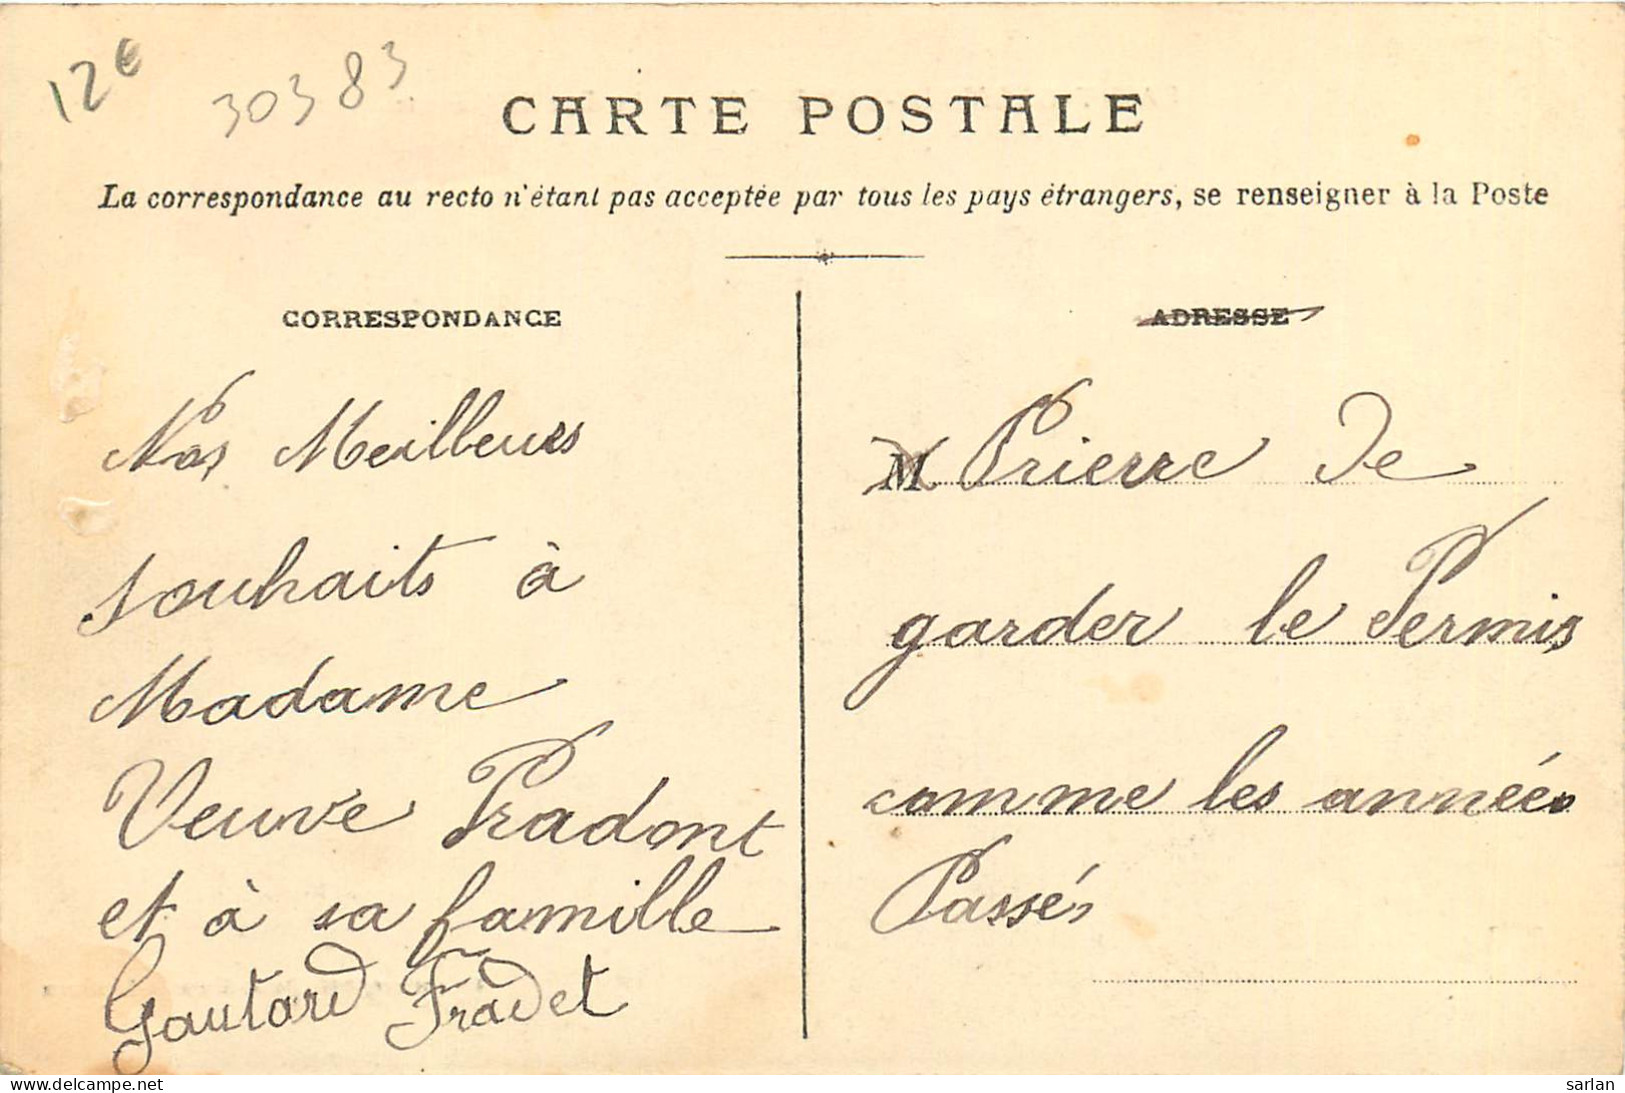 12€
30383
CARTE POSTALE
La correspondance au recto n'étant pas acceptée par tous les pays étrangers, se renseigner à la Poste
CORRESPONDANCE
Nos Meilleures
souhaits à
Madame
Veuve Pradont
et à sa famille
Gautard Fradet
ADRESSE
M. Prierre de
garder le Permis
comme les années
Passés
www.delcampe.net
sarlan